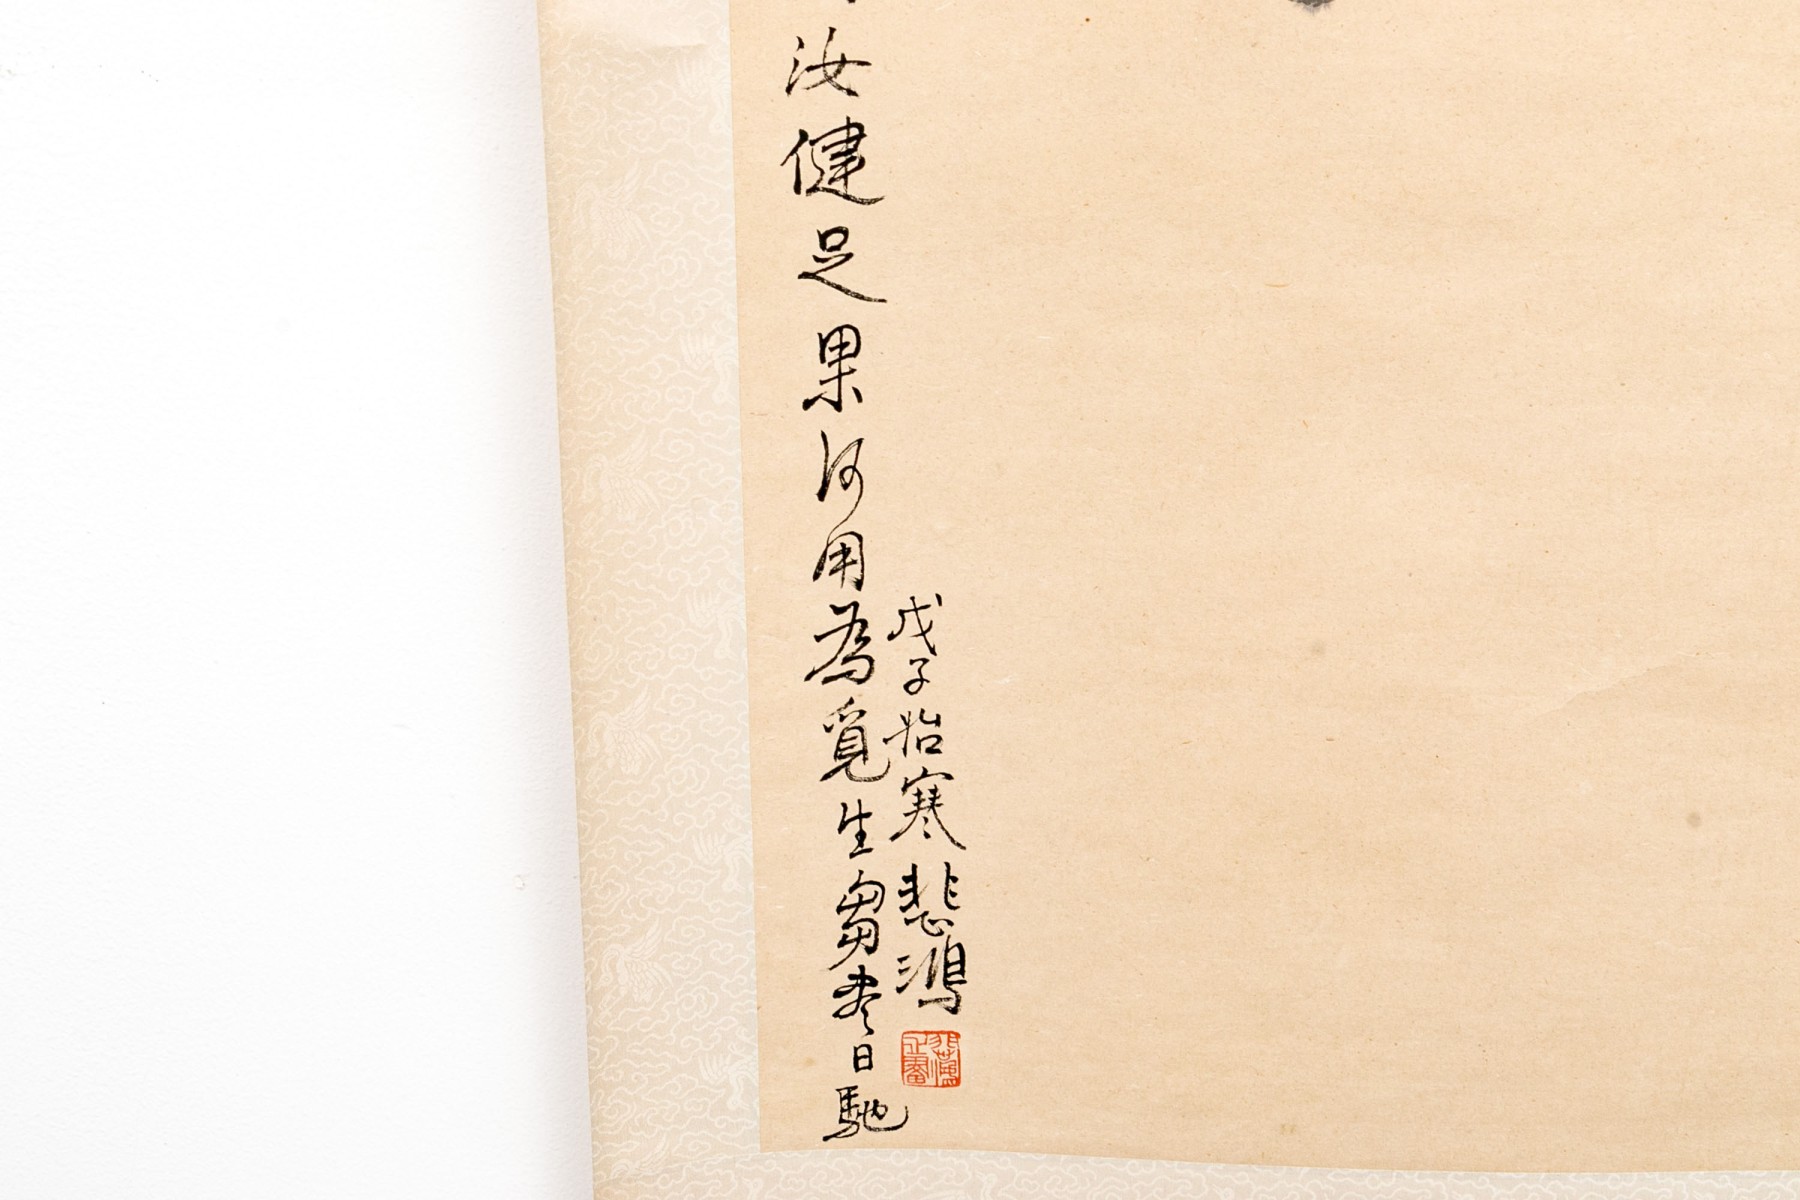 汝健足果何用為覓生芻盡日馳
戊子始寒悲鴻